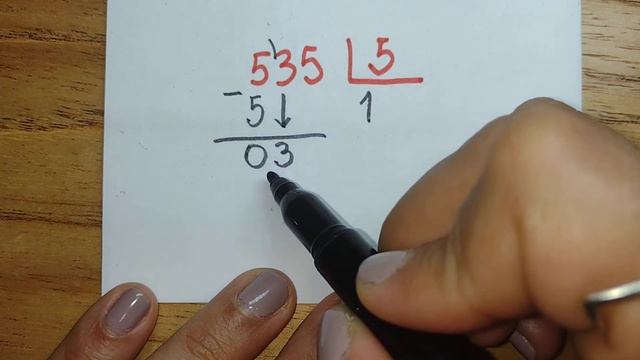 535 5
- 5 ↓ 1
03